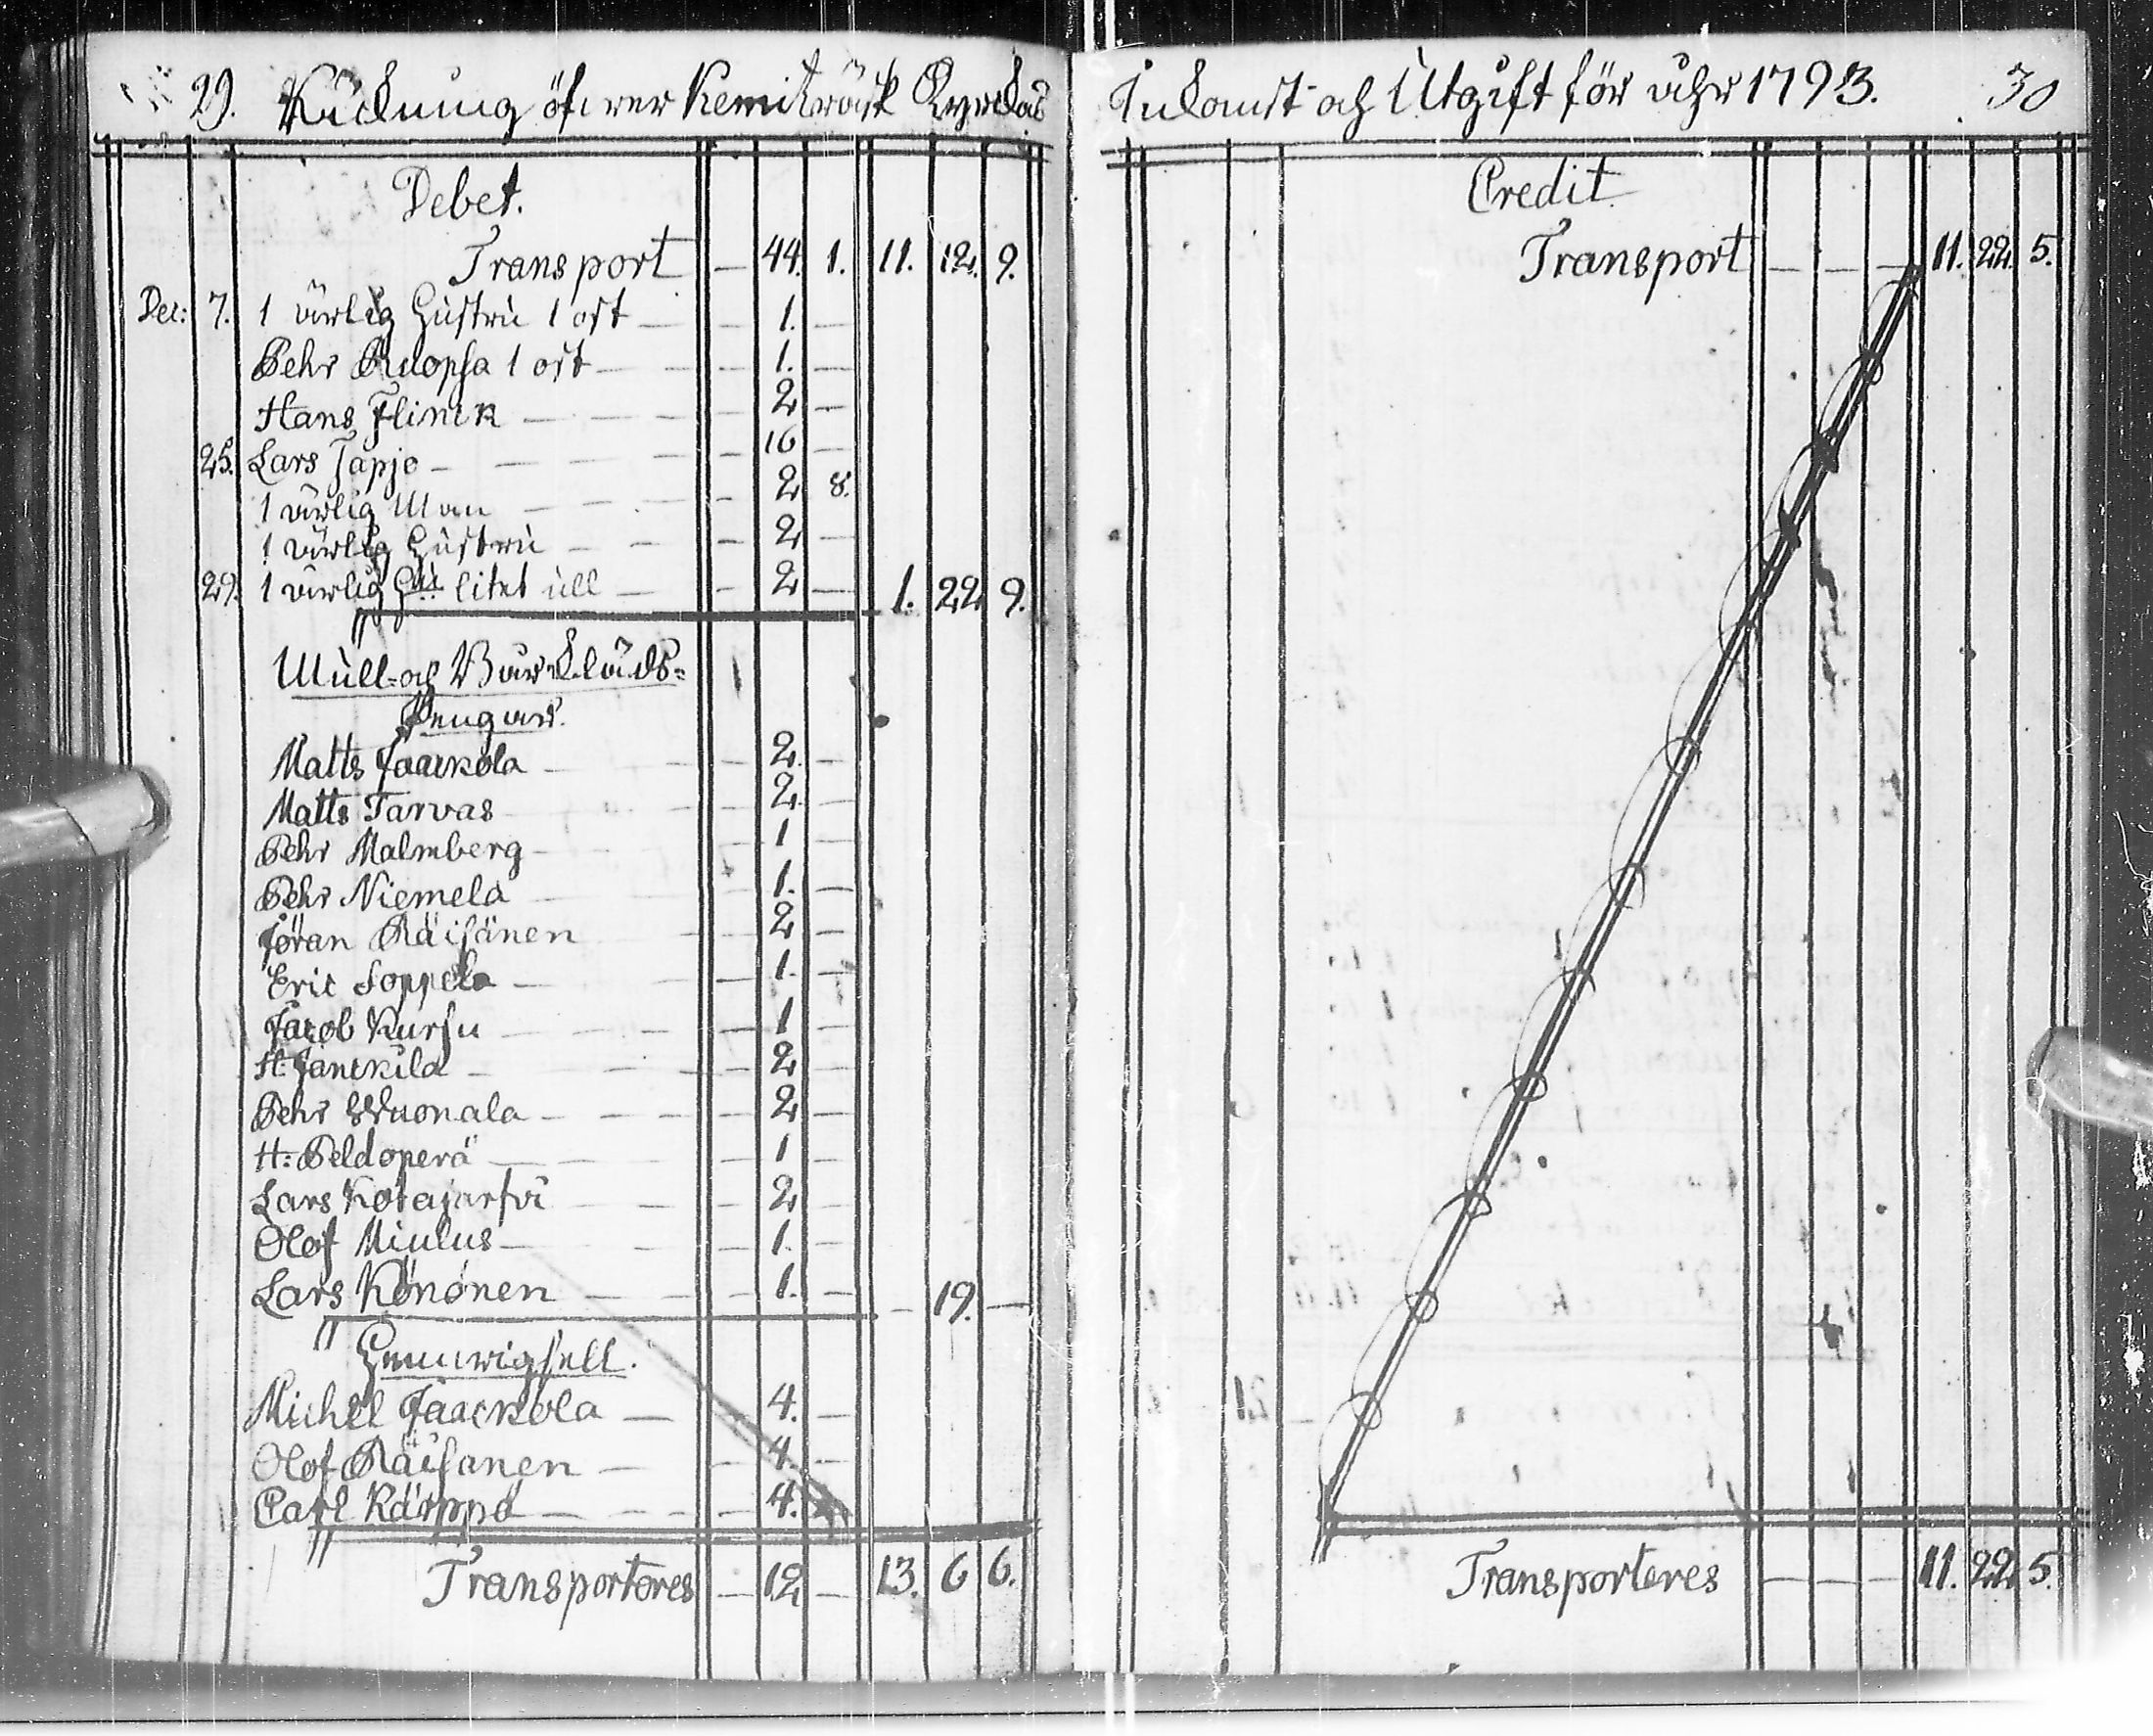 29. Räckning öfwer Kemiträsk Kyrckas
Debet.
Transport — 44. 1. 11. 12. 9.
Dec: 7. 1 ärlig Hustru 1 ost — 1. —
Pehr Ruopsa 1 ost — 1. —
Hans Flinck — 2 —
25. Lars Tapjo — 16 —
1 ärlig Man — 2 8.
1 ärlig Hustru — 2 —
29. 1 ärlig Hu: litet ull — 2 — 1. 22 9.
Mull- och Bårkläds-
Pengar.
Matts Jaackola — 2. —
Matts Tarvas — 2. —
Pehr Malmberg — 1 —
Pehr Niemelä — 1. —
Jöran Räisänen — 2 —
Eric Soppela — 1. —
Jacob Kursu — 1 —
H: Janckila — 2 —
Pehr Wuonala — 2 —
H: Peldoperä — 1 —
Lars Kotajärfvi — 2 —
Olof Miulus — 1. —
Lars Könönen — 1. — — 19. —
Hemwigsell.
Michel Jaackola — 4. —
Olof Räisänen — 4. —
Carl Kärppä — 4. —
Transporteres — 12 — 13. 6 6.
Inkomst- och Utgift för åhr 1793. 30
Credit
Transport — — — 11. 22. 5.
Transporteres — — — 11. 22. 5.